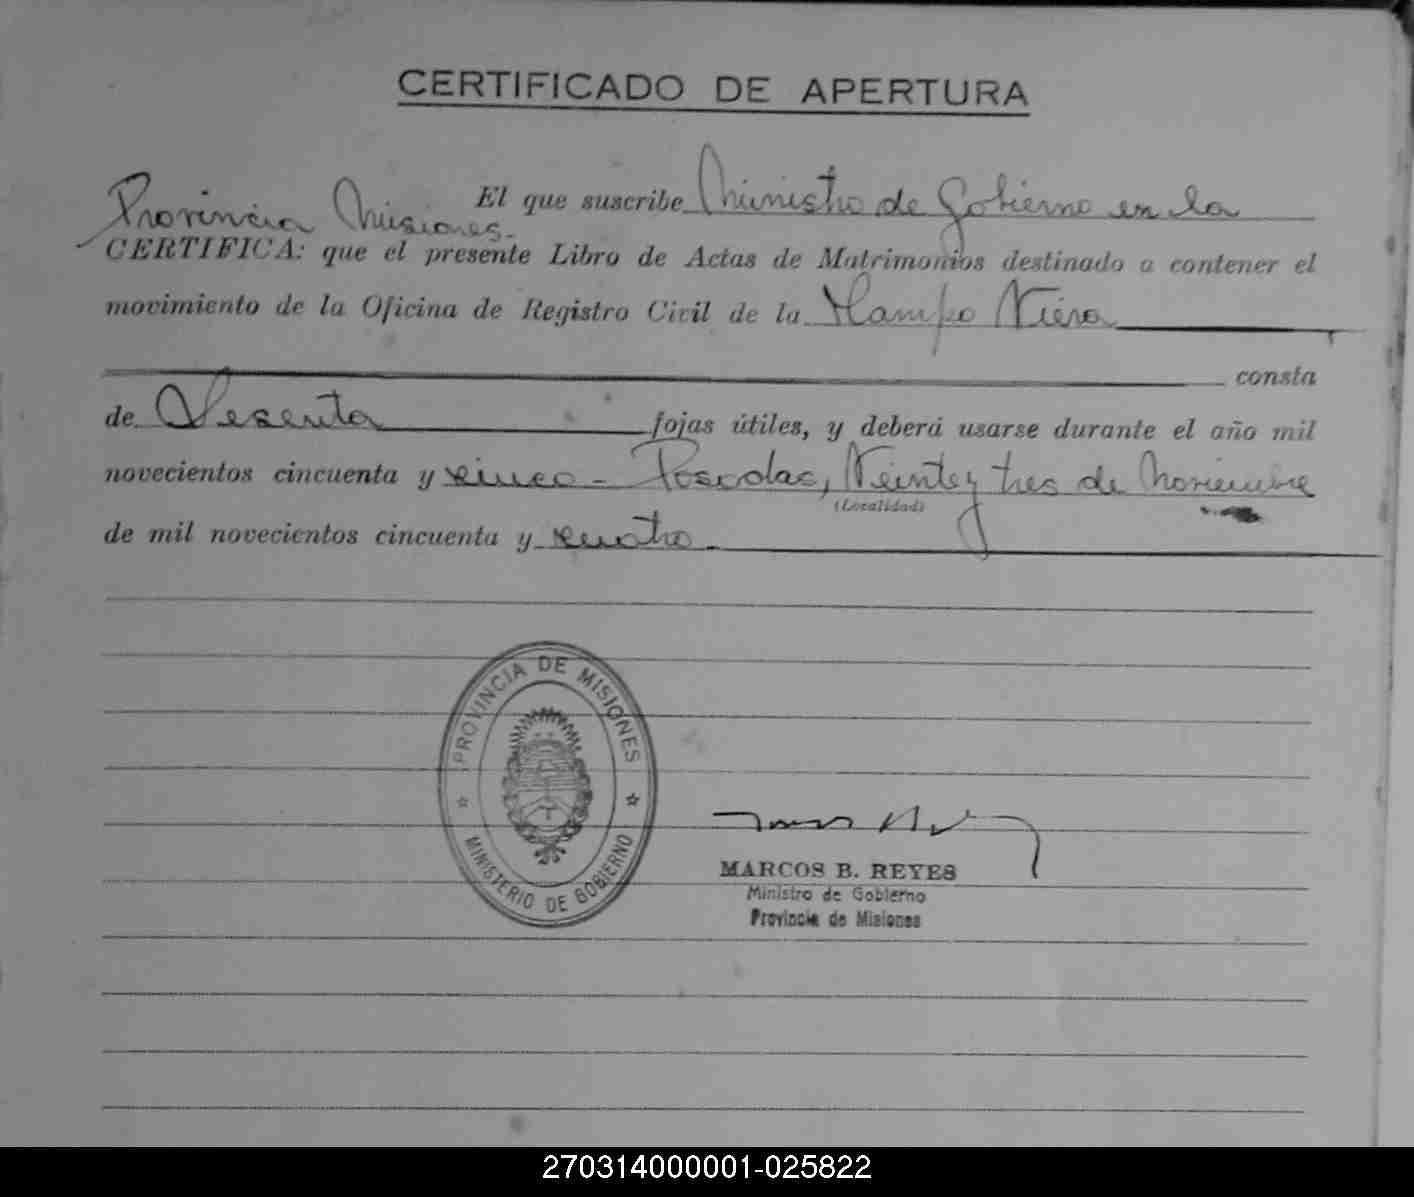 CERTIFICADO DE APERTURA
El que suscribe Ministro de Gobierno en la
Provincia Misiones.-
CERTIFICA: que el presente Libro de Actas de Matrimonios destinado a contener el
movimiento de la Oficina de Registro Civil de la Campo Viera
consta
de Sesenta fojas útiles, y deberá usarse durante el año mil
novecientos cincuenta y cinco - Posadas, Veinte y tres de Noviembre
(Localidad)
de mil novecientos cincuenta y cuatro.
PROVINCIA DE MISIONES
MINISTERIO DE GOBIERNO
MARCOS B. REYES
Ministro de Gobierno
Provincia de Misiones
270314000001-025822